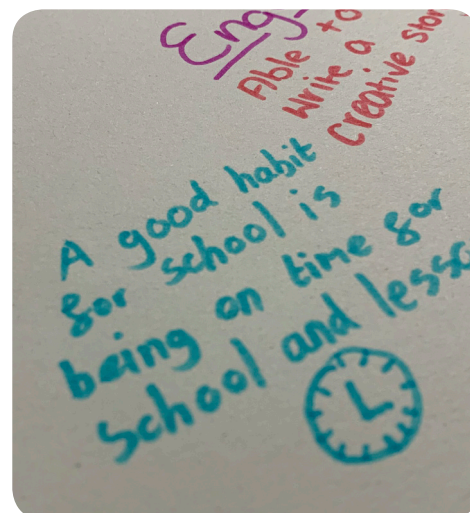 Eng
Able to
Write a
Creative stor
A good habit
for school is
being on time for
school and lesso